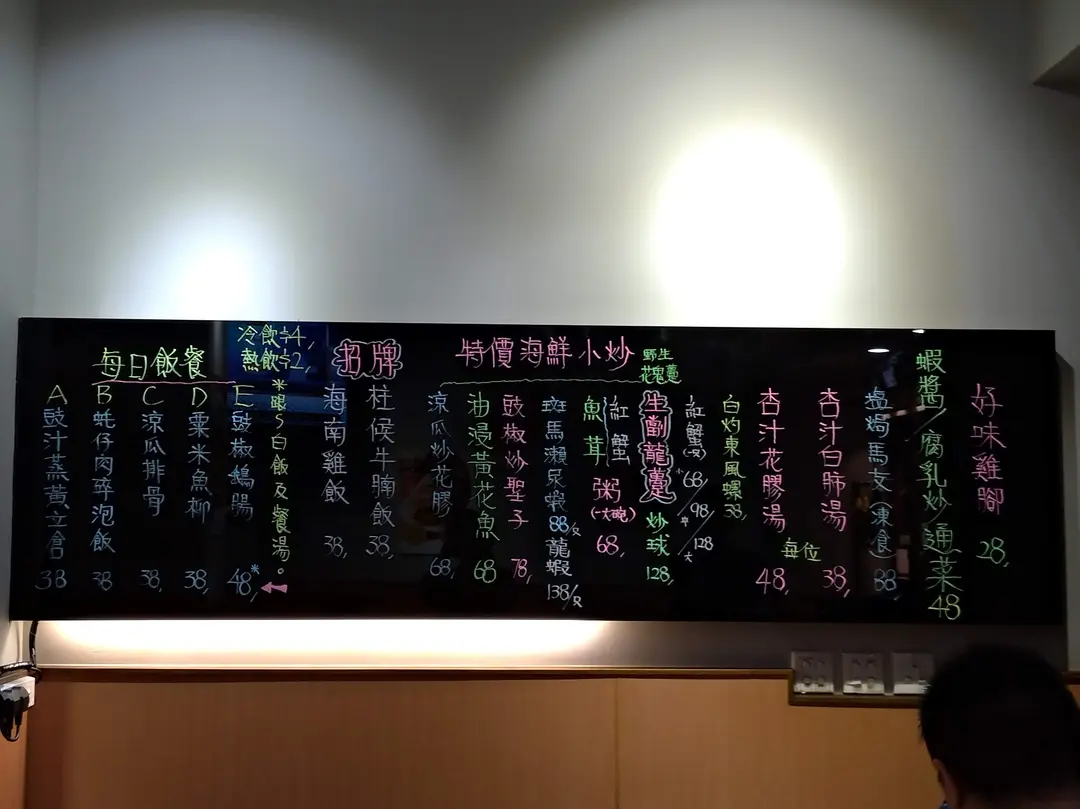 每日飯餐
冷飲+4,
熱飲+2,
A 豉汁蒸黃立倉 38
B 蚝仔肉碎泡飯 38
C 涼瓜排骨 38,
D 粟米魚柳 38,
E 豉椒鵝腸 48,*
*跟S白飯及餐湯。
招牌
海南雞飯 38,
柱侯牛腩飯 38,
特價海鮮小炒
涼瓜炒花膠 68,
油浸黃花魚 68
豉椒炒聖子 78,
斑馬瀨尿蝦 88/隻
龍蝦 138/隻
魚茸
紅蟹
粥
(一大碗)
68,
野生
花鬼躉
生劏龍躉
炒球
128,
紅蟹
小68/
中98/
大128
白灼東風螺 38,
杏汁花膠湯 48,
杏汁白肺湯 38,
每位
鹽焗馬友(凍食) 88
蝦醬/腐乳炒通菜 48
好味雞腳 28,